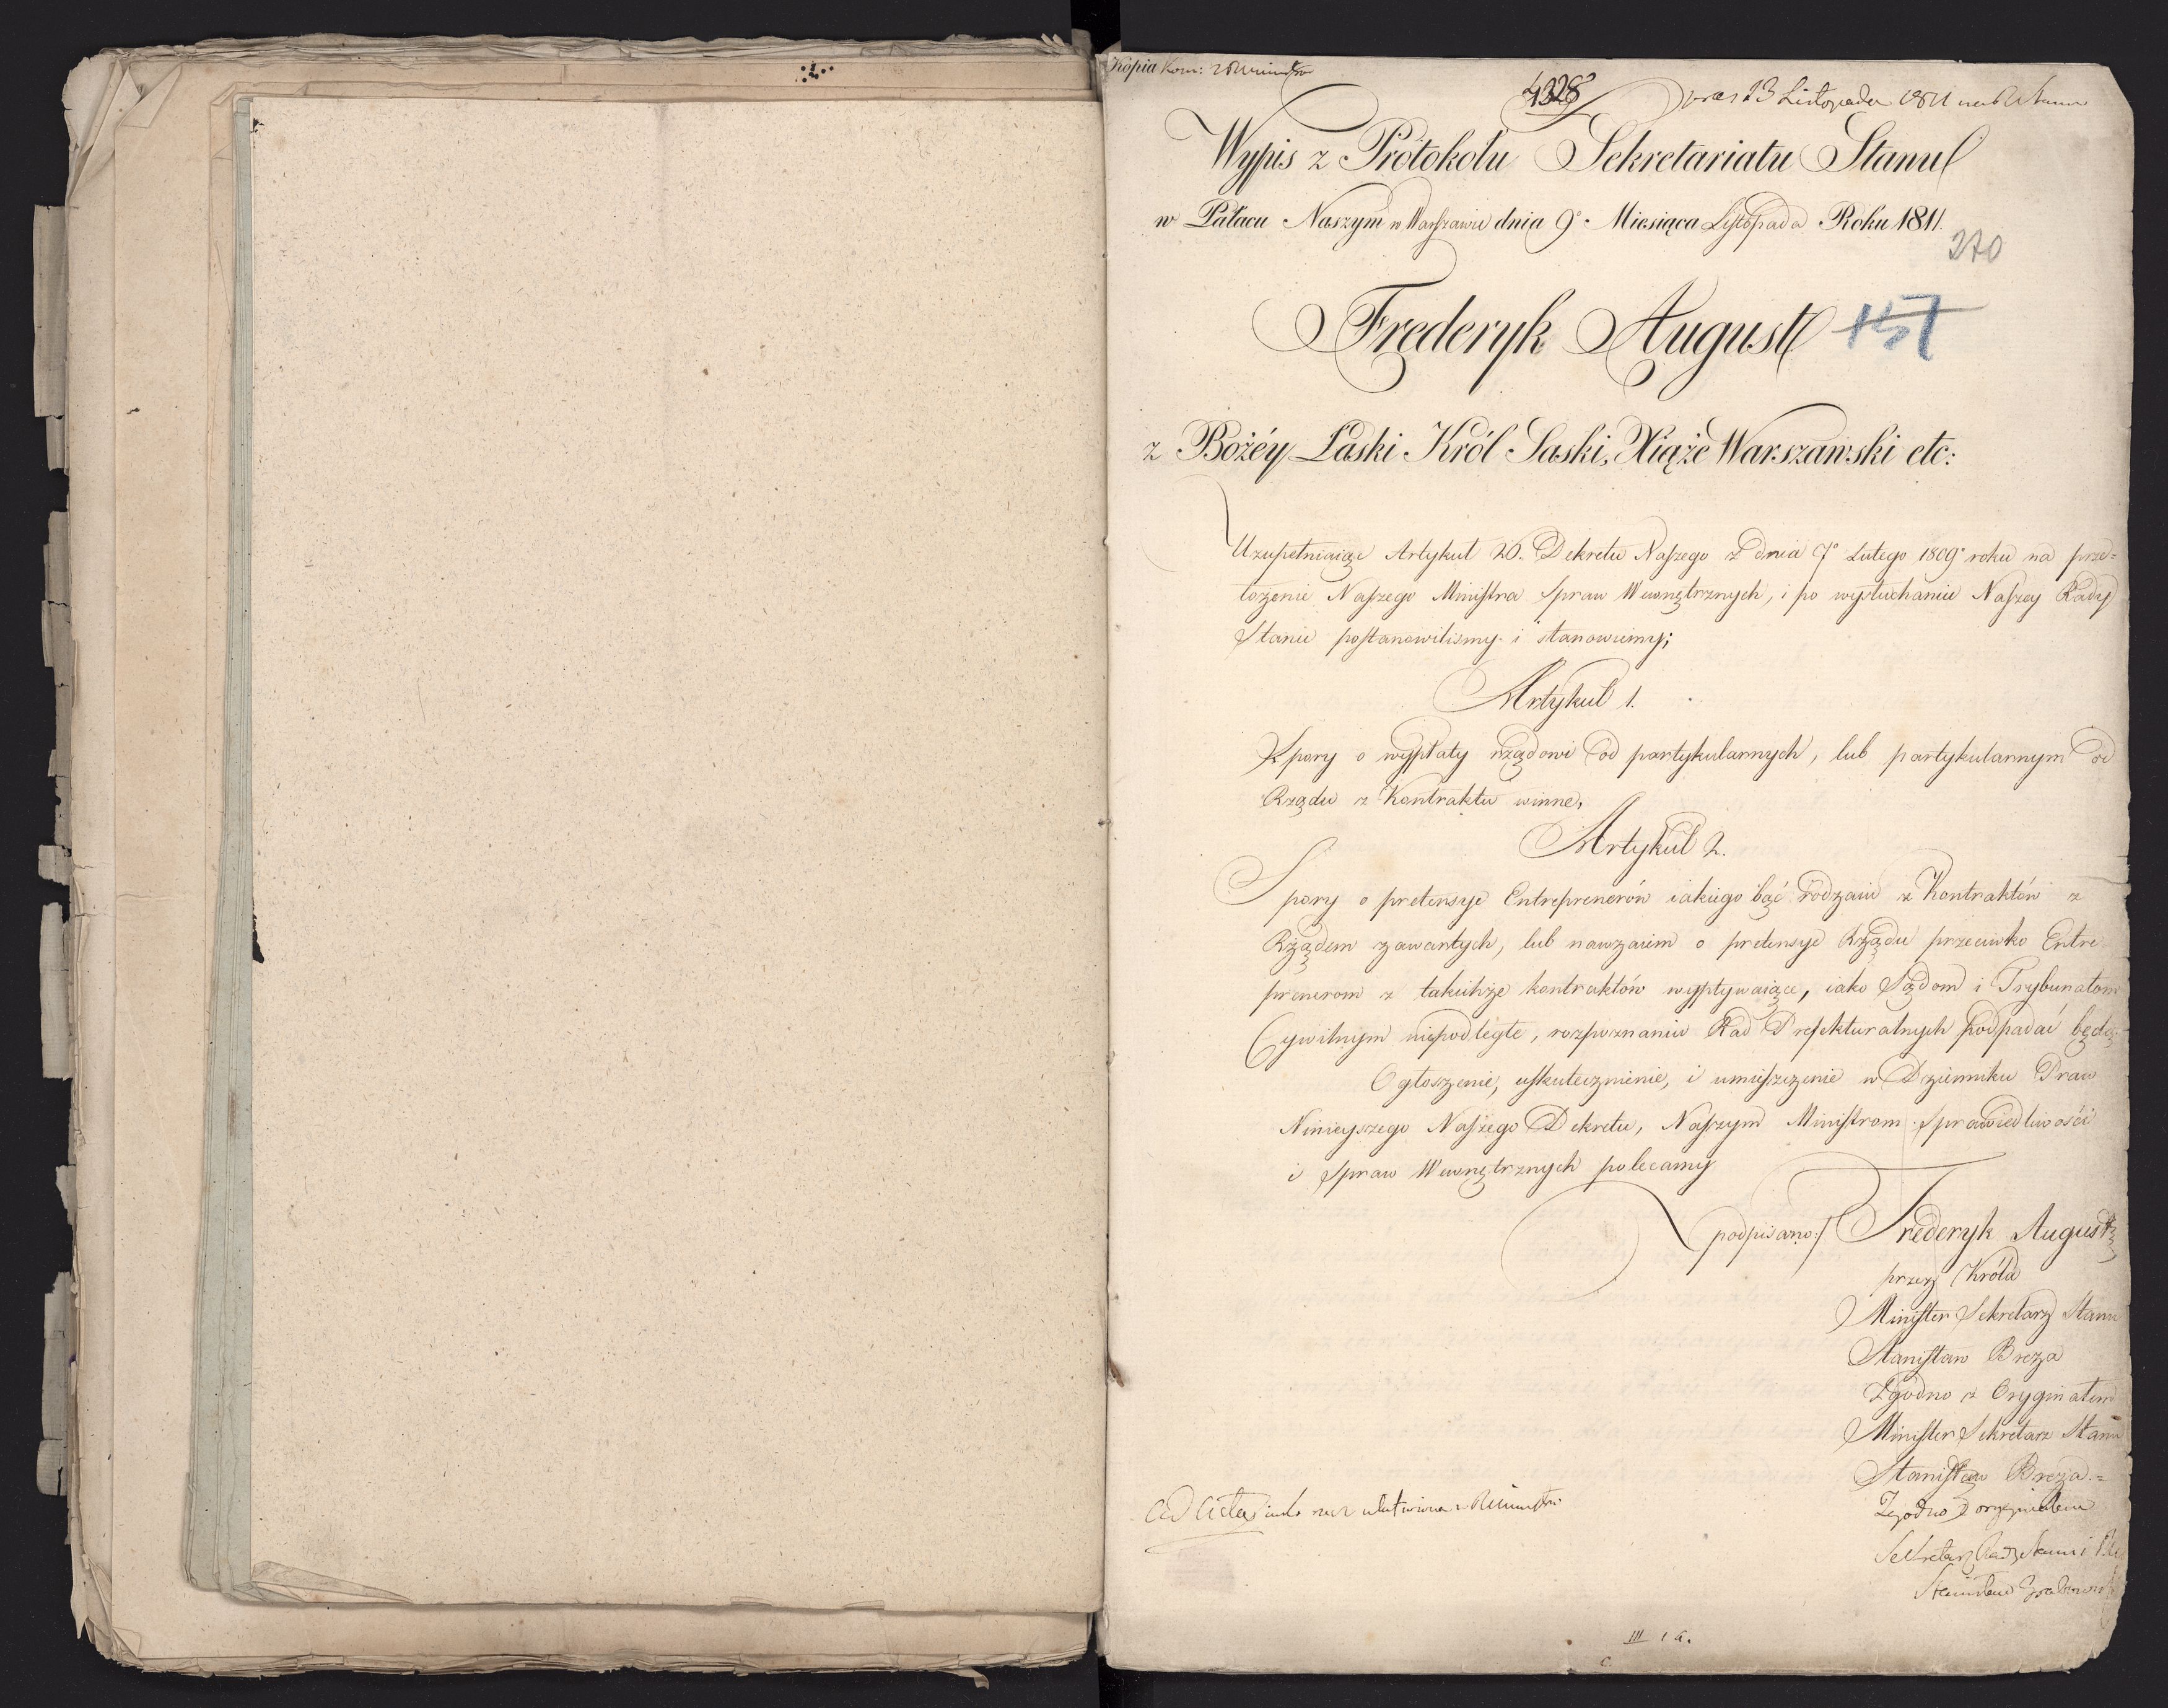 Kópia Kom:
4328 Praes 13 Listopada 1811
Wypis z Protokołu Sekretariatu Stanu
w Pałacu Naszym w Warszawie dnia 9º Miesiąca Listopada Roku 1811.
270
Frederyk August
157
z Bożéy Łaski Król Saski, Xiąże Warszawski etc:
Uzupełniaiąc Artykuł 20. Dekretu Naszego z dnia 7º Lutego 1809º roku na prze=
łożenie Naszego Ministra Spraw Wewnętrznych, i po wysłuchaniu Naszey Rady
Stanu postanowilismy i stanowiemy;
Artykuł 1.
Spory o wypłaty rządowi od partykularnych, lub partykularnym od
Rządu z Kontraktu winne,
Artykuł 2.
Spory o pretensye Entreprenerów iakiego bąć rodzaiu z Kontraktów z
Rządem zawartych, lub nawzaiem o pretensye Rządu przeciwko Entre
prenerom z takichże kontraktów wypływaiące, iako Sądom i Trybunałom
Cywilnym niepodległe, rozpoznaniu Rad Prefekturalnych podpadać będą.
Ogłoszenie, uskutecznienie, i umieszczenie w Dzienniku Praw
Ninieyszego Naszego Dekretu, Naszym Ministrom Sprawiedliwości
i Spraw Wewnętrznych polecamy
podpisano:/ Frederyk August
przez Króla
Minister Sekretarz Stanu
Stanisław Breza
Zgodno z Oryginałem
Minister Sekretarz Stanu
Stanisław Breza.=
Zgodno z oryginałem
Sekretarz Rady Stanu i
Stanisław Grabowski
ad acta
III 1 a.